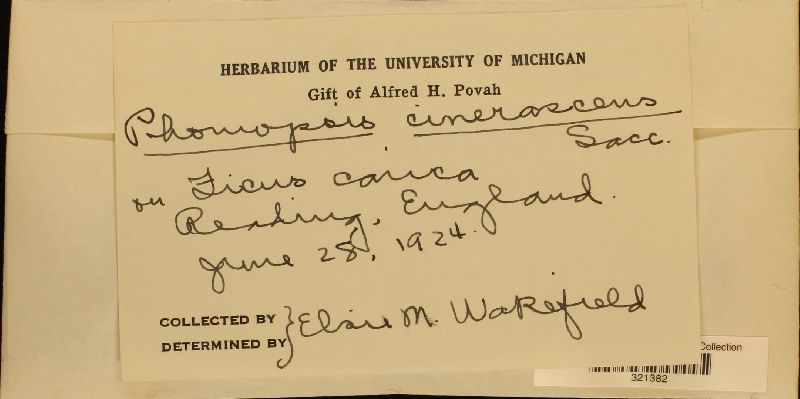 HERBARIUM OF THE UNIVERSITY OF MICHIGAN
Gift of Alfred H. Povah
Phomopsis cinerascens
Sacc.
on Ficus carica
Reading, England.
June 28, 1924.
COLLECTED BY
DETERMINED BY } Elsie M. Wakefield
Collection
321382